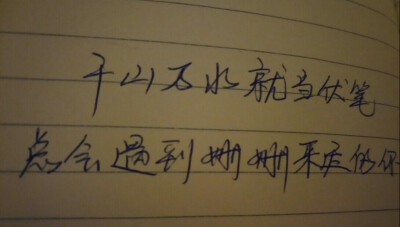 千山万水就当伏笔
总会遇到姗姗来迟的你